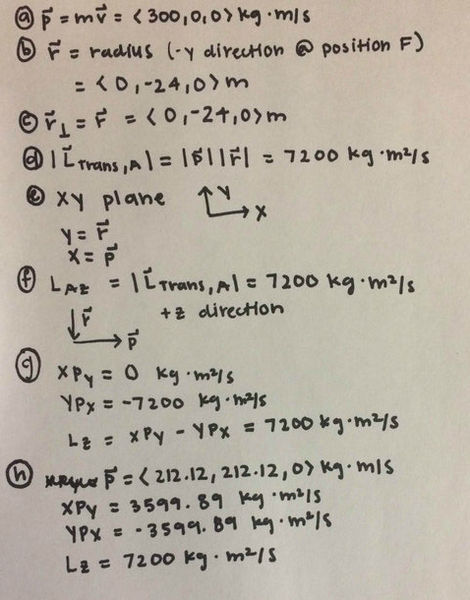 ⓐ p⃗ = mv⃗ = <300,0,0> kg·m/s
ⓑ r⃗ = radius (-y direction @ position F)
= <0,-24,0> m
ⓒ r⃗⊥ = r⃗ = <0,-24,0> m
ⓓ |L⃗Trans,A| = |p⃗||r⃗| = 7200 kg·m²/s
ⓔ XY plane Y X
Y = r⃗
X = p⃗
ⓕ LAZ = |L⃗Trans,A| = 7200 kg·m²/s
r⃗ +z direction
p⃗
ⓖ XPy = 0 kg·m²/s
YPx = -7200 kg·m²/s
Lz = XPy - YPx = 7200 kg·m²/s
ⓗ p⃗ = <212.12, 212.12, 0> kg·m/s
XPy = 3599.89 kg·m²/s
YPx = -3599.89 kg·m²/s
Lz = 7200 kg·m²/s